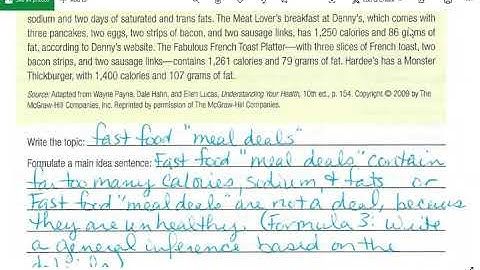 sodium and two days of saturated and trans fats. The Meat Lover's breakfast at Denny's, which comes with
three pancakes, two eggs, two strips of bacon, and two sausage links, has 1,250 calories and 86 grams of
fat, according to Denny's website. The Fabulous French Toast Platter—with three slices of French toast, two
bacon strips, and two sausage links—contains 1,261 calories and 79 grams of fat. Hardee's has a Monster
Thickburger, with 1,400 calories and 107 grams of fat.
Source: Adapted from Wayne Payne, Dale Hahn, and Ellen Lucas, Understanding Your Health, 10th ed., p. 154. Copyright © 2009 by The
McGraw-Hill Companies, Inc. Reprinted by permission of The McGraw-Hill Companies.
Write the topic: fast food "meal deals"
Formulate a main idea sentence: Fast food "meal deals" contain
far too many calories, sodium, & fats or
Fast food "meal deals" are not a deal, because
they are unhealthy. (Formula 3: Write
a general inference based on the